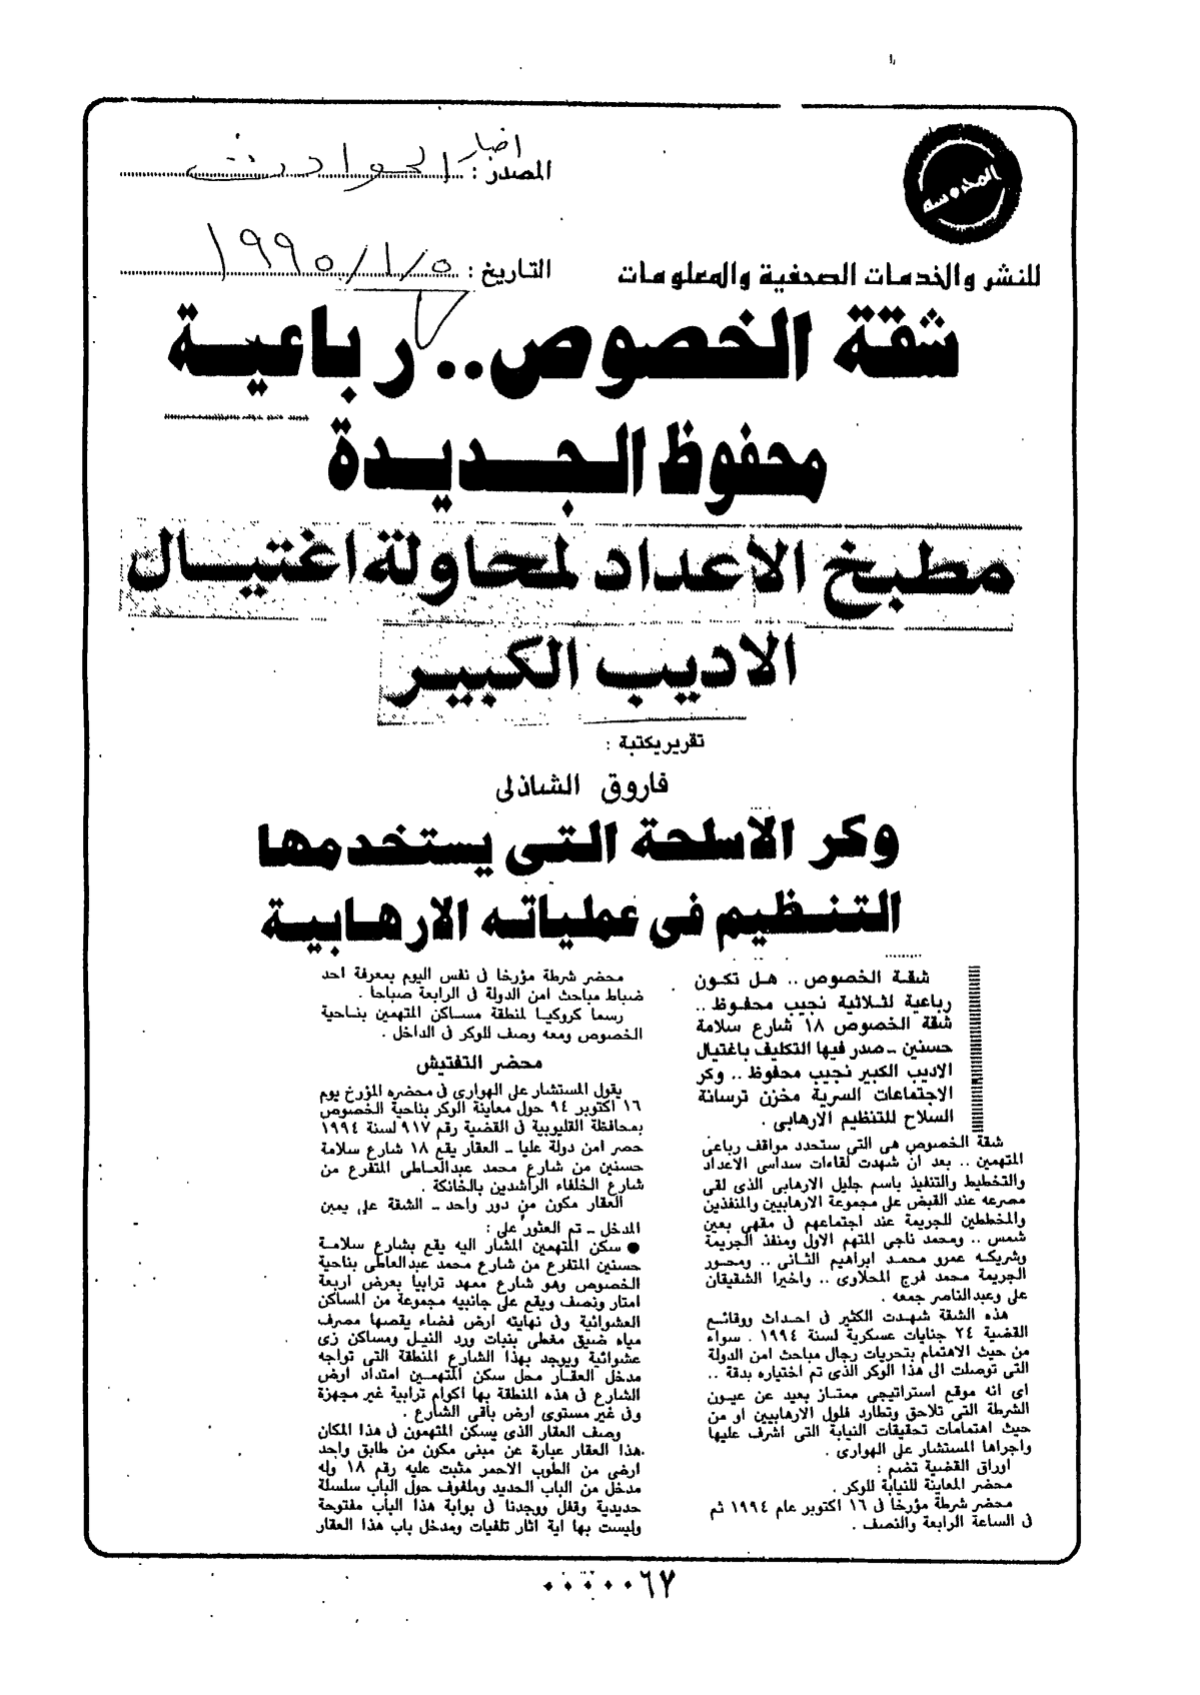 المحروسة
للنشر والخدمات الصحفية والمعلومات
المصدر : اخبار الحوادث
التاريخ : ١٩٩٥/١/٥
شقة الخصوص .. رباعية
محفوظ الجديدة
مطبخ الاعداد لمحاولة اغتيال
الاديب الكبير
تقرير يكتبة :
فاروق الشاذلى
وكر الاسلحة التى يستخدمها
التنظيم فى عملياته الارهابية
شقة الخصوص .. هل تكون
رباعية لثلاثية نجيب محفوظ ..
شقة الخصوص ١٨ شارع سلامة
حسنين ــ صدر فيها التكليف باغتيال
الاديب الكبير نجيب محفوظ .. وكر
الاجتماعات السرية مخزن ترسانة
السلاح للتنظيم الارهابى .
شقة الخصوص هى التى ستحدد مواقف رباعى
المتهمين .. بعد ان شهدت لقاءات سداسى الاعداد
والتخطيط والتنفيذ باسم جليل الارهابى الذى لقى
مصرعه عند القبض على مجموعة الارهابيين والمنفذين
والمخططين للجريمة عند اجتماعهم فى مقهى بعين
شمس .. ومحمد ناجى المتهم الاول ومنفذ الجريمة
وشريكه عمرو محمد ابراهيم الثانى .. ومحور
الجريمة محمد فرج المحلاوى .. واخيرا الشقيقان
على وعبدالناصر جمعه .
هذه الشقة شهدت الكثير فى احداث ووقائع
القضية ٢٤ جنايات عسكرية لسنة ١٩٩٤ . سواء
من حيث الاهتمام بتحريات رجال مباحث امن الدولة
التى توصلت الى هذا الوكر الذى تم اختياره بدقة ..
اى انه موقع استراتيجى ممتاز بعيد عن عيون
الشرطة التى تلاحق وتطارد فلول الارهابيين او من
حيث اهتمامات تحقيقات النيابة التى اشرف عليها
واجراها المستشار على الهوارى .
اوراق القضية تضم :
محضر المعاينة للنيابة للوكر .
محضر شرطة مؤرخا فى ١٦ اكتوبر عام ١٩٩٤ ثم
فى الساعة الرابعة والنصف .
محضر شرطة مؤرخا فى نفس اليوم بمعرفة احد
ضباط مباحث امن الدولة فى الرابعة صباحا .
رسما كروكيا لمنطقة مساكن المتهمين بناحية
الخصوص ومعه وصف للوكر فى الداخل .
محضر التفتيش
يقول المستشار على الهوارى فى محضره المؤرخ يوم
١٦ اكتوبر ٩٤ حول معاينة الوكر بناحية الخصوص
بمحافظة القليوبية فى القضية رقم ٩١٧ لسنة ١٩٩٤
حصر امن دولة عليا ــ العقار يقع ١٨ شارع سلامة
حسنين من شارع محمد عبدالعاطى المتفرع من
شارع الخلفاء الراشدين بالخانكة .
العقار مكون من دور واحد ــ الشقة على يمين
المدخل ــ تم العثور على :
● سكن المتهمين المشار اليه يقع بشارع سلامة
حسنين المتفرع من شارع محمد عبدالعاطى بناحية
الخصوص وهو شارع ممهد ترابيا بعرض اربعة
امتار ونصف ويقع على جانبيه مجموعة من المساكن
العشوائية وفى نهايته ارض فضاء يقصها مصرف
مياه ضيق مغطى بنبات ورد النيل ومساكن زى
عشوائية ويوجد بهذا الشارع المنطقة التى تواجه
مدخل العقار محل سكن المتهمين امتداد ارض
الشارع فى هذه المنطقة بها اكوام ترابية غير مجهزة
وفى غير مستوى ارض باقى الشارع .
وصف العقار الذى يسكن المتهمون فى هذا المكان
هذا العقار عبارة عن مبنى مكون من طابق واحد
ارضى من الطوب الاحمر مثبت عليه رقم ١٨ وله
مدخل من الباب الحديد وملفوف حول الباب سلسلة
حديدية وقفل ووجدنا فى بوابة هذا الباب مفتوحة
وليست بها اية اثار تلفيات ومدخل باب هذا العقار
٠٠٠٠٠٦٧